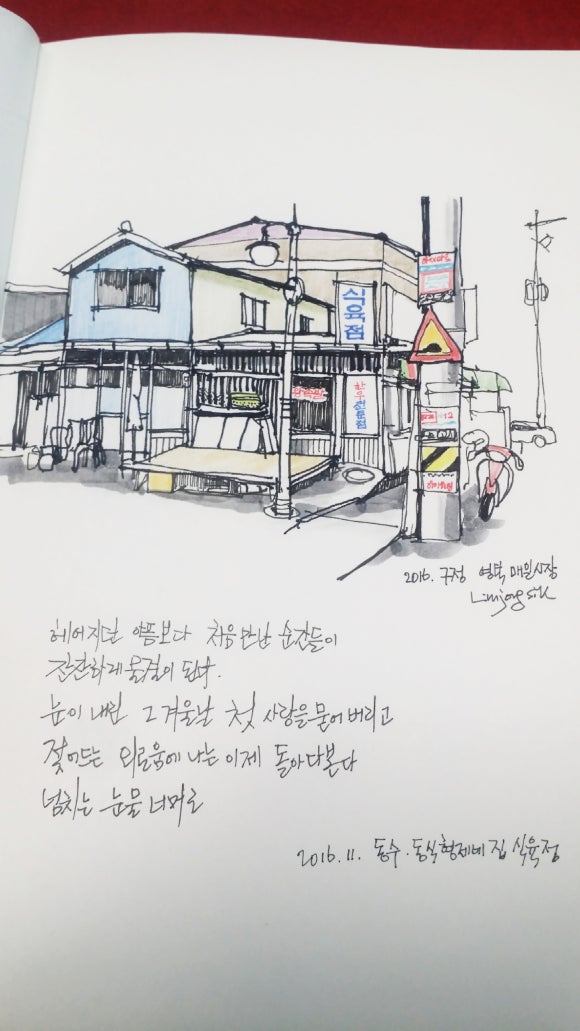 식육점
한우
전문점
12
2016. 구정 영덕 매일시장
Limjongsik
헤어지던 아픔보다 처음 만난 순간들이
잔잔하게 물결이 된다.
눈이 내린 그 겨울날 첫 사랑을 묻어 버리고
젖어드는 외로움에 나는 이제 돌아다본다
넘치는 눈물 너머로
2016. 11. 동수. 동식형제네 집 식육점